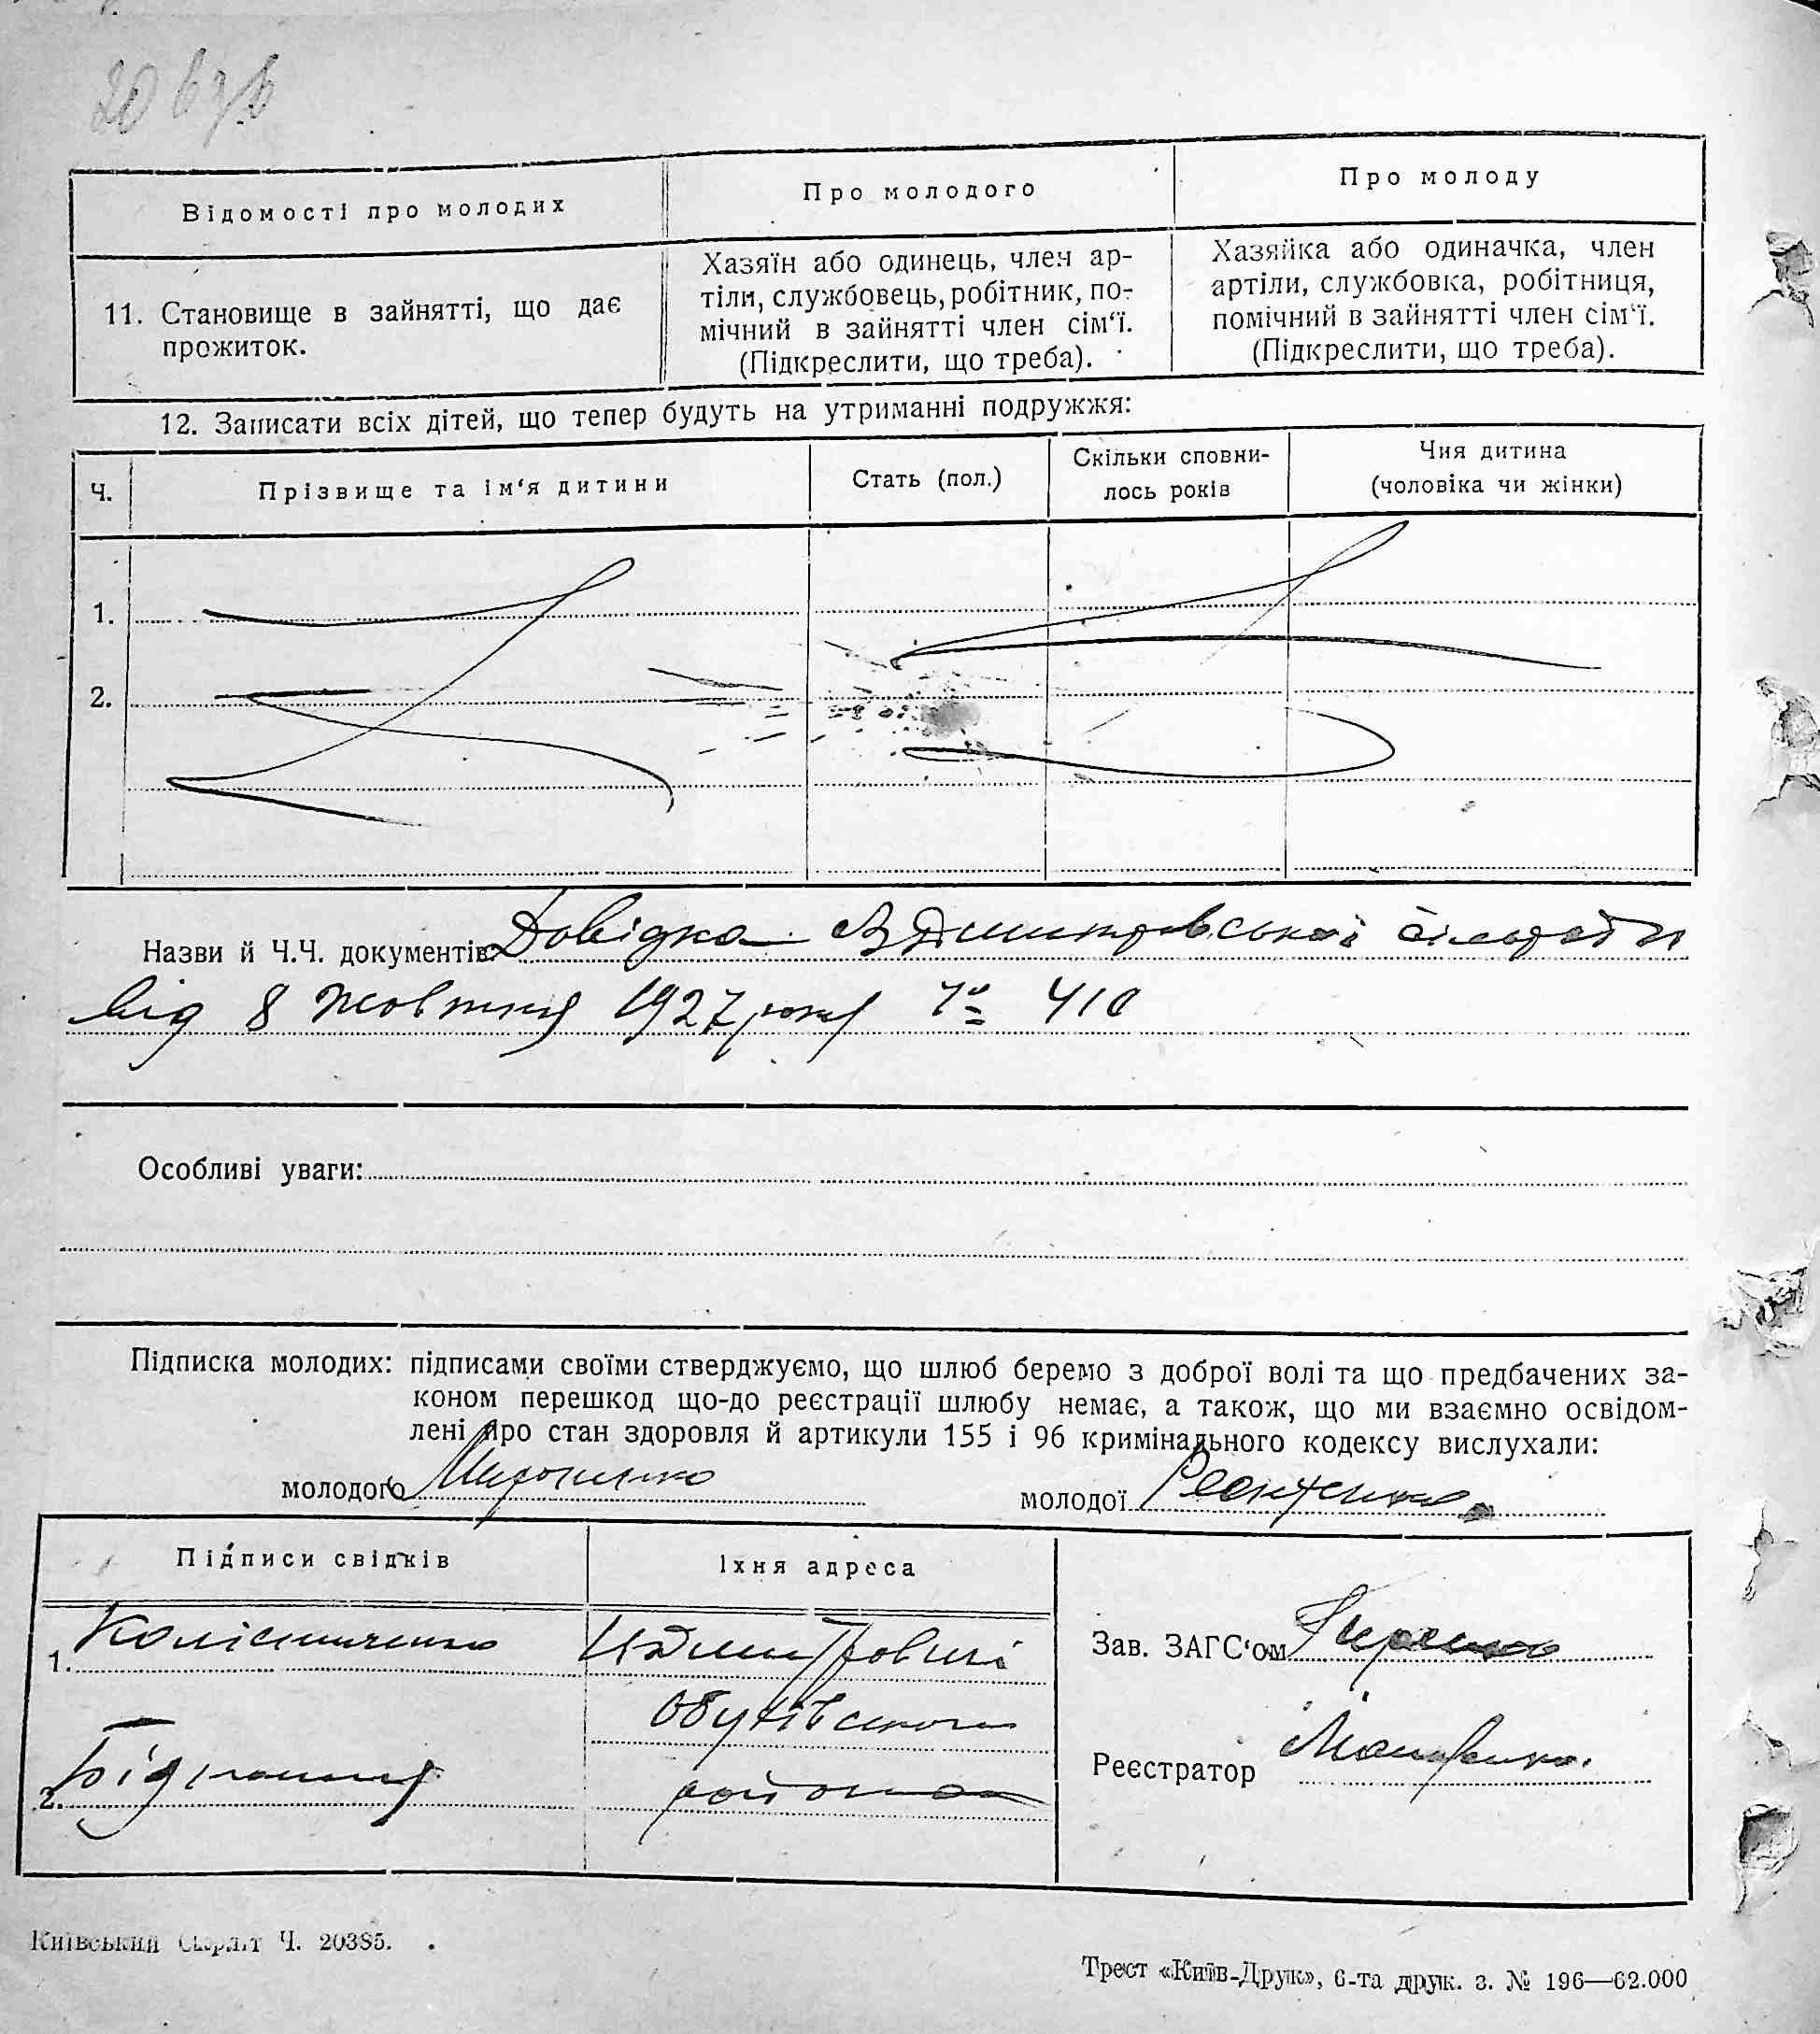 Відомості про молодих
Про молодого
Про молоду
11. Становище в зайнятті, що дає
прожиток.
Хазяїн або одинець, член ар-
тіли, службовець, робітник, по-
мічний в зайнятті член сім‘ї.
(Підкреслити, що треба).
Хазяйка або одиначка, член
артіли, службовка, робітниця,
помічний в зайнятті член сім‘ї.
(Підкреслити, що треба).
12. Записати всіх дітей, що тепер будуть на утриманні подружжя:
Ч.
Прізвище та ім‘я дитини
Стать (пол.)
Скільки сповни-
лось років
Чия дитина
(чоловіка чи жінки)
1.
2.
Назви й Ч.Ч. документів: Довідка сільради
від 8 жовтня 1927 року № 410
Особливі уваги:
Підписка молодих: підписами своїми стверджуємо, що шлюб беремо з доброї волі та що предбачених за-
коном перешкод що-до реєстрації шлюбу немає, а також, що ми взаємно освідом-
лені про стан здоровля й артикули 155 і 96 кримінального кодексу вислухали:
молодого
молодої
Підписи свідків
Їхня адреса
1. Колісниченко
Обухівського
района
2.
Зав. ЗАГС‘ом
Реєстратор
Київський Окрліт Ч. 20385.
Трест «Київ-Друк», 6-та друк. з. № 196—62.000